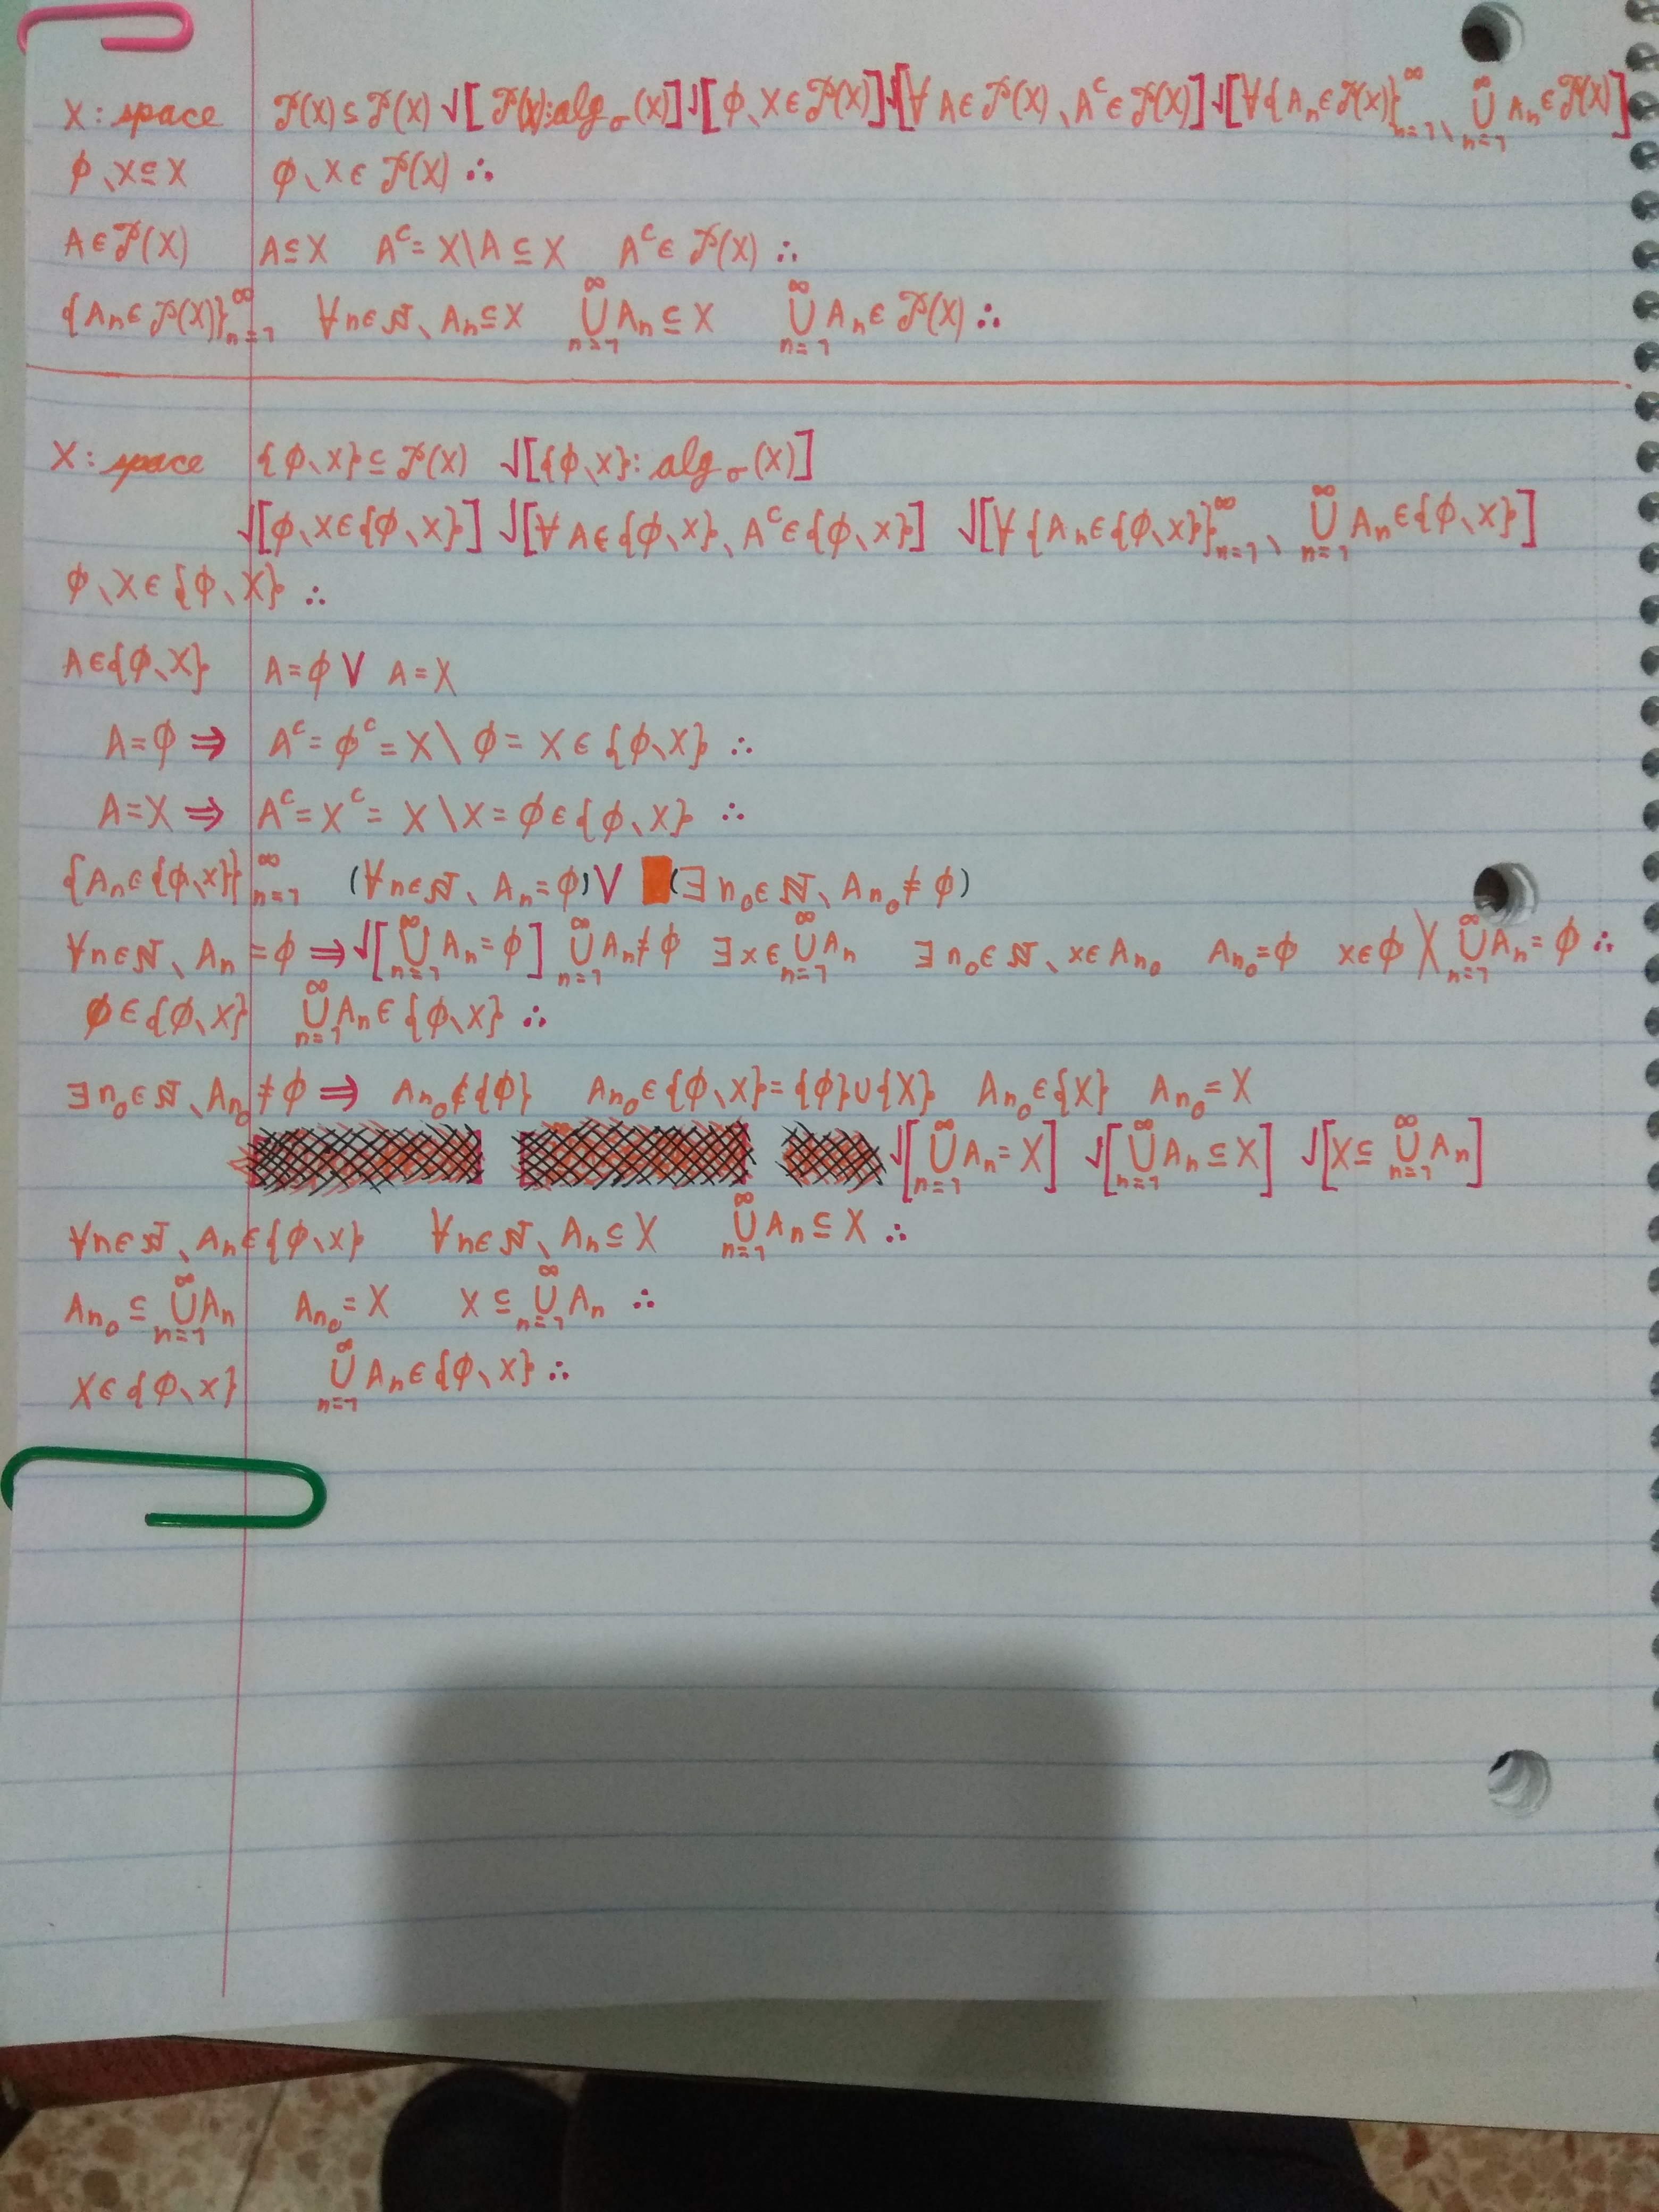 X: space 𝒫(X) ⊆ 𝒫(X) √[𝒫(X): alg_σ(X)] √[ϕ、X ∈ 𝒫(X)] √[∀ A ∈ 𝒫(X)、A^c ∈ 𝒫(X)] √[∀ {A_n ∈ 𝒫(X)}_{n=1}^∞、 ⋃_{n=1}^∞ A_n ∈ 𝒫(X)]
ϕ、X ⊆ X ϕ、X ∈ 𝒫(X) ∴
A ∈ 𝒫(X) A ⊆ X A^c = X\A ⊆ X A^c ∈ 𝒫(X) ∴
{A_n ∈ 𝒫(X)}_{n=1}^∞ ∀n∈ℕ、A_n ⊆ X ⋃_{n=1}^∞ A_n ⊆ X ⋃_{n=1}^∞ A_n ∈ 𝒫(X) ∴
X: space {ϕ、X} ⊆ 𝒫(X) √[{ϕ、X}: alg_σ(X)]
√[ϕ、X ∈ {ϕ、X}] √[∀ A ∈ {ϕ、X}、A^c ∈ {ϕ、X}] √[∀ {A_n ∈ {ϕ、X}}_{n=1}^∞、 ⋃_{n=1}^∞ A_n ∈ {ϕ、X}]
ϕ、X ∈ {ϕ、X} ∴
A ∈ {ϕ、X} A = ϕ ∨ A = X
A = ϕ ⇒ A^c = ϕ^c = X \ ϕ = X ∈ {ϕ、X} ∴
A = X ⇒ A^c = X^c = X \ X = ϕ ∈ {ϕ、X} ∴
{A_n ∈ {ϕ、X}}_{n=1}^∞ (∀n∈ℕ、A_n = ϕ) ∨ (∃ n_0 ∈ ℕ、A_{n_0} ≠ ϕ)
∀n∈ℕ、A_n = ϕ ⇒ √[⋃_{n=1}^∞ A_n = ϕ] ⋃_{n=1}^∞ A_n ≠ ϕ ∃ x ∈ ⋃_{n=1}^∞ A_n ∃ n_0 ∈ ℕ、x ∈ A_{n_0} A_{n_0} = ϕ x ∈ ϕ ╳ ⋃_{n=1}^∞ A_n = ϕ ∴
ϕ ∈ {ϕ、X} ⋃_{n=1}^∞ A_n ∈ {ϕ、X} ∴
∃ n_0 ∈ ℕ、A_{n_0} ≠ ϕ ⇒ A_{n_0} ∉ {ϕ} A_{n_0} ∈ {ϕ、X} = {ϕ} ∪ {X} A_{n_0} ∈ {X} A_{n_0} = X
√[⋃_{n=1}^∞ A_n = X] √[⋃_{n=1}^∞ A_n ⊆ X] √[X ⊆ ⋃_{n=1}^∞ A_n]
∀n∈ℕ、A_n ∈ {ϕ、X} ∀n∈ℕ、A_n ⊆ X ⋃_{n=1}^∞ A_n ⊆ X ∴
A_{n_0} ⊆ ⋃_{n=1}^∞ A_n A_{n_0} = X X ⊆ ⋃_{n=1}^∞ A_n ∴
X ∈ {ϕ、X} ⋃_{n=1}^∞ A_n ∈ {ϕ、X} ∴